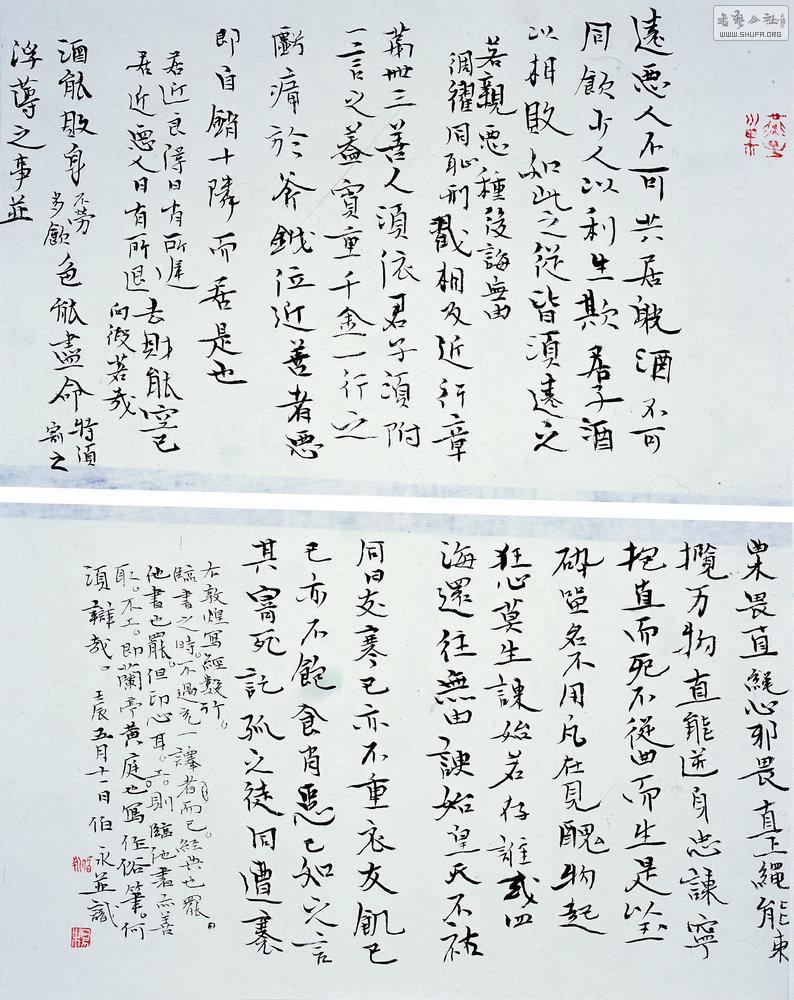 書藝公社
WWW.SHUFA.ORG
遠惡人不可共居戝酒不可
同飲小人以利生欺君子酒
以相敗如此之從皆須遠之
若親惡種後誨無由
同恥刑戮相及近行章
萬卌三善人須依君子須附
一言之益實重千金一行之
虧痛於斧鉞位近善者惡
即自銷十隣而居是也
居近良隣日有所進
居近惡人日有所退
去財能空己
向後若哉
酒能敗身
不勞多飲
色能盡命
特須窬之
浮薄之事並
粟畏直繩心邪畏直上繩能束
攬万物直能逆身忠諫寧
抱直而死不從曲而生是以玉
碎留名不用凡在見醜物起
狂心莫生諫始若存誰或四
海還往無由諛始皇天不祐
同日友寒己亦不重衣友飢己
己亦不飽食肖惡己知之言
其寄死託孤之徒同遭喪
右敦煌寫經數行。
臨書之時。不過充一譯者而已。經典也罷。
他書也罷。但印心耳。工則臨他書亦善
取。不工。即蘭亭黃庭也寫作俗筆。何
須辯哉。壬辰五月十一日伯永並識